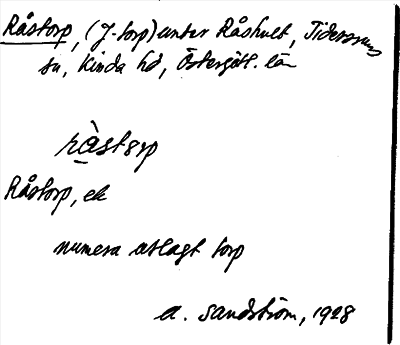 Råstorp, (J-torp) under Råshult, Tidersrums
sn, Kinda hd, Östergötl. län
råstorp
Råstorp, ek
numera avlagt torp
A. Sandström, 1928